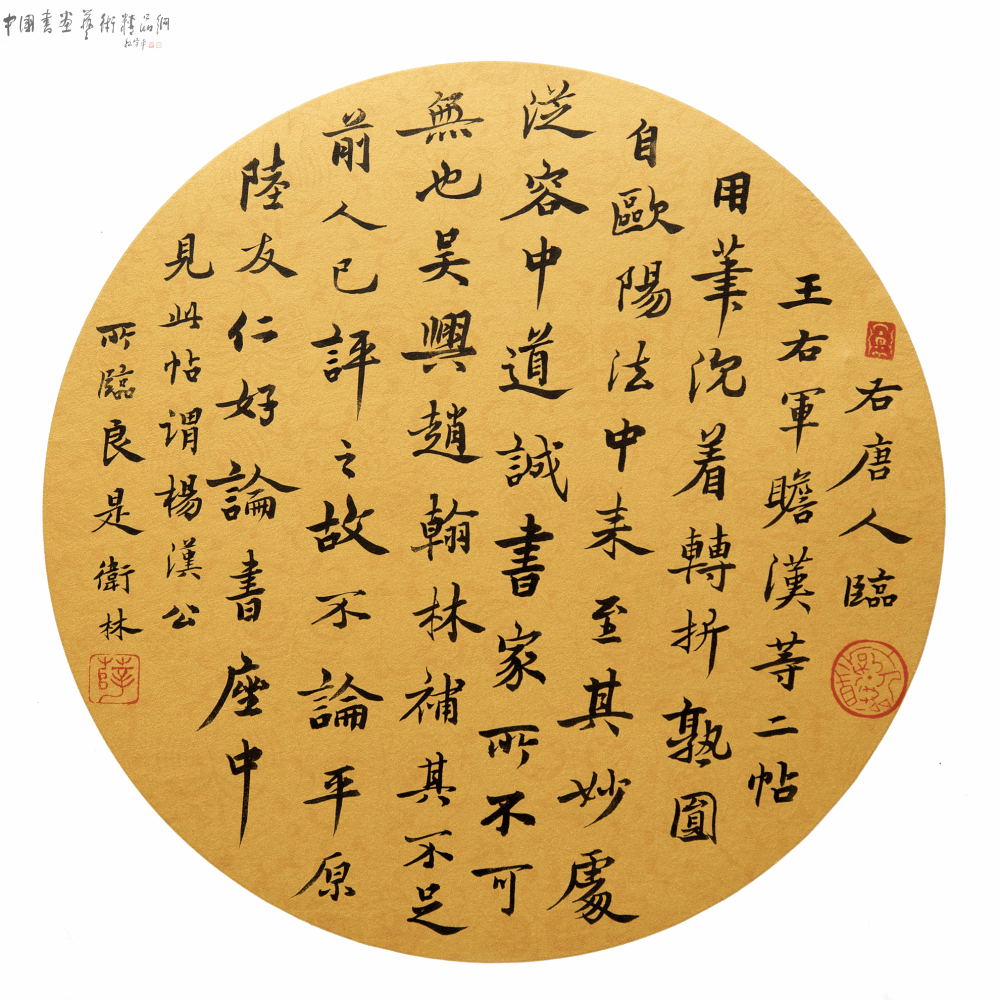 中國書畫藝術精品網
右唐人臨
王右軍瞻漢等二帖
用筆沉着轉折熟圓
自歐陽法中来至其妙處
從容中道誠書家所不可
無也吴興趙翰林補其不足
前人已評之故不論平原
陸友仁好論書座中
見此帖谓楊漢公
所臨良是衛林
薛